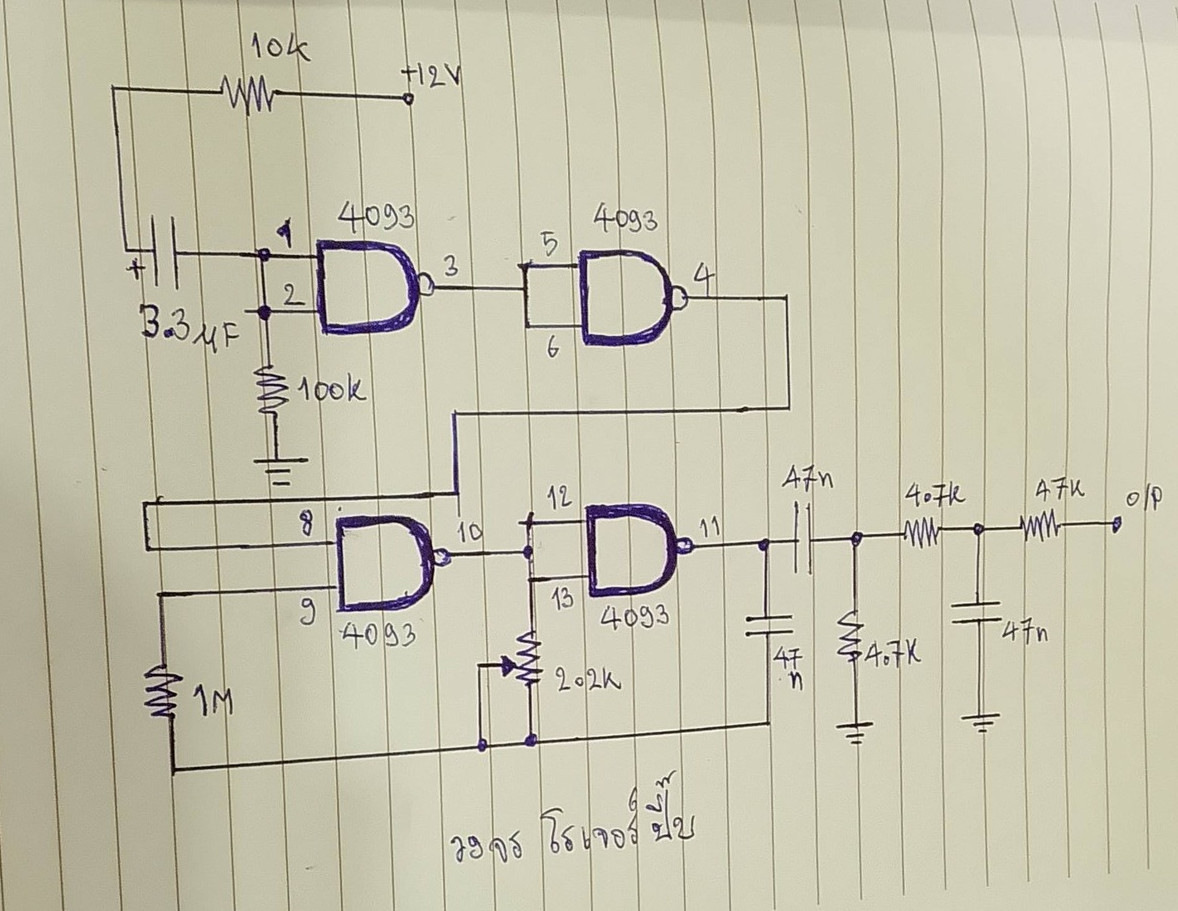 10k
+12V
4093
4093
1
2
3
5
6
4
+
3.3μF
100k
47n
4.7k
47k
O/P
8
9
10
12
13
11
4093
4093
1M
2.2k
47
n
4.7k
47n
วงจร โรเจอร์ ปี๊บ